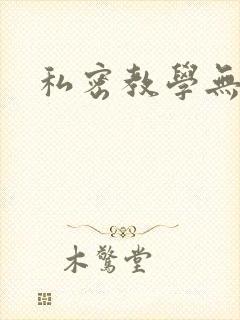 私密教學無
木驚堂